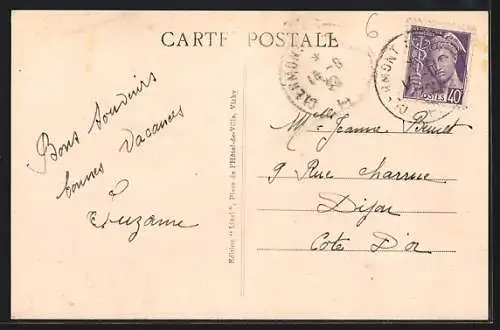 6
CARTE POSTALE
CLERMONT
POSTES 40
Bons souvenirs
bonnes Vacances
Suzanne
Edition "Idéal", Place de l'Hôtel-de-Ville, Vichy
Melle Jeanne
9 Rue Charrue
Dijon
Côte D'or